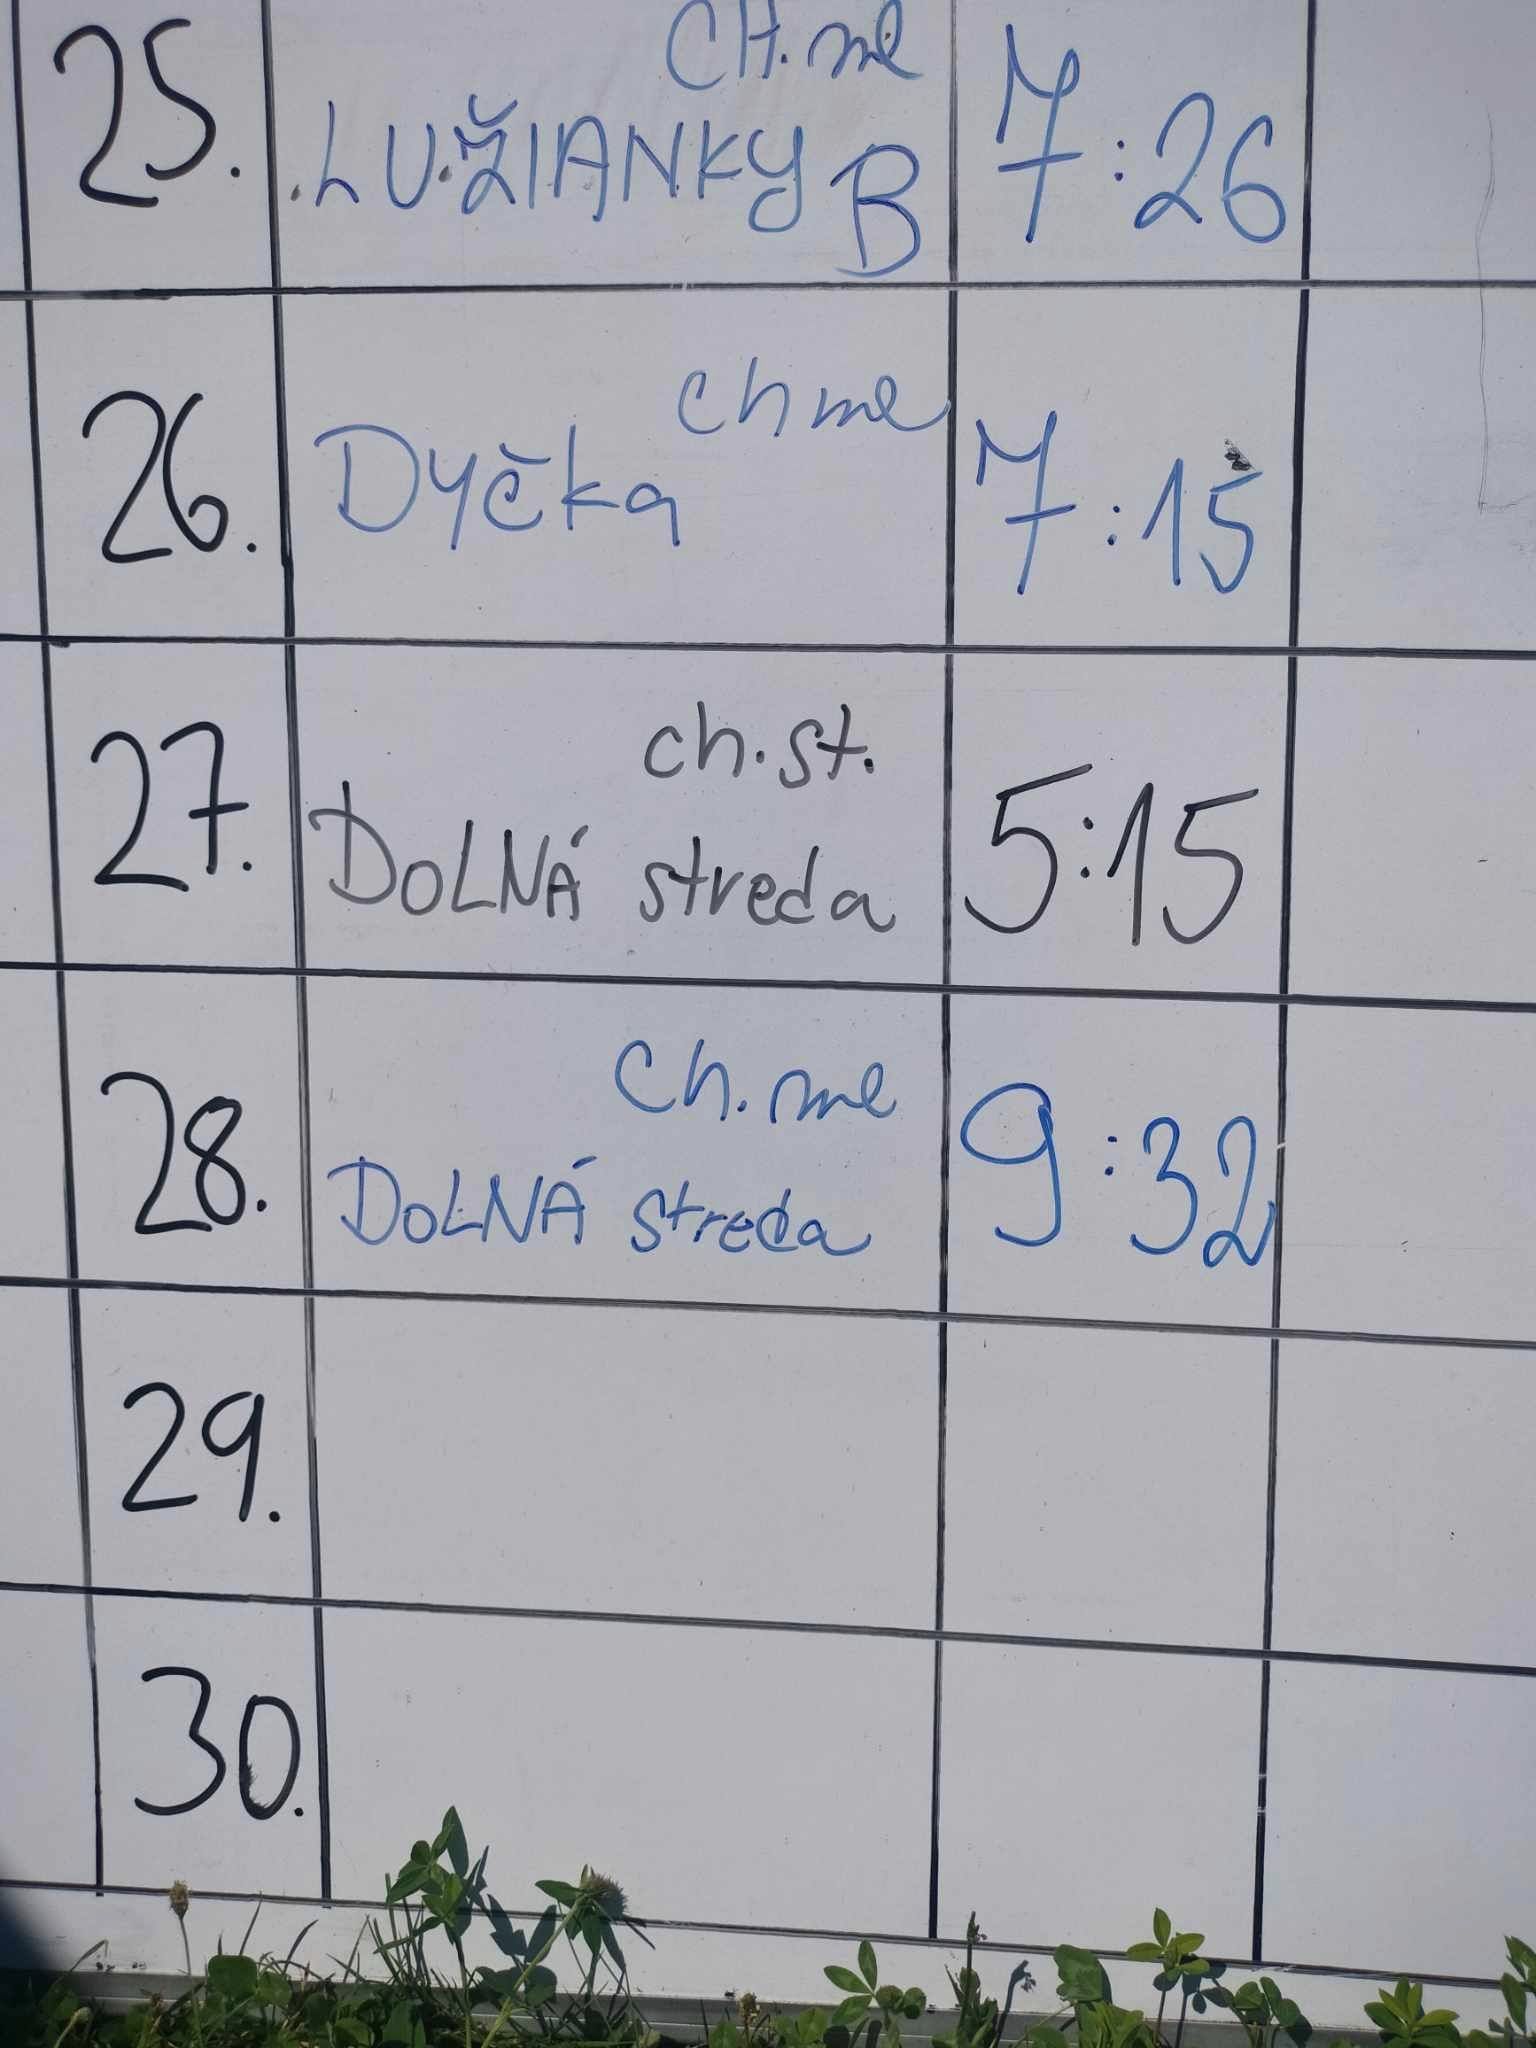 25. CH. ml
LUŽIANKY B 7:26
26. ch ml
Dyčka 7:15
27. ch. st.
DOLNÁ streda 5:15
28. Ch. ml
DOLNÁ streda 9:32
29.
30.